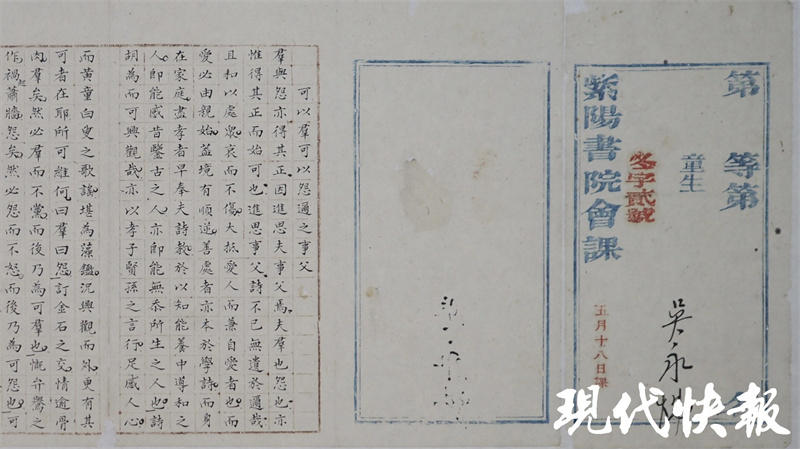 第 等第 名
童生 吳永
冬字貳號
紫陽書院會課
五月十八日課
可以羣可以怨邇之事父
羣與怨亦得其正因進思夫事父焉夫羣也怨也亦
惟得其正而始可也進思事父詩不已無遺於邇哉
且和以處衆哀而不傷大抵愛人而兼自愛者也而
愛必由親始蓋境有順逆善處者亦本於學詩而身
在家庭盡孝者早奉夫詩教於以知能養中導和之
人即能感昔鑒古之人亦即能無忝所生之人也詩
胡為而可興觀哉亦以孝子賢孫之言行足感人心
而黃童白叟之歌謠堪為藻鑑況興觀而外更有其
可者在耶所可維何曰羣曰怨訂金石之交情逾骨
肉羣矣然必羣而不黨而後乃為可羣也慨弁鸒之
作禍起蕭牆怨矣然必怨而不怒而後乃為可怨也可
現代快報